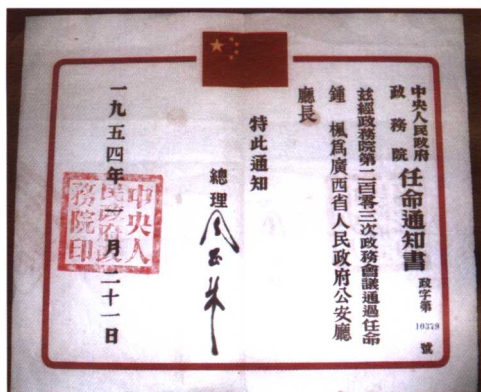 中央人民政府
政務院
任命通知書
政字第10379號
茲經政務院第二百零三次政務會議通過任命
鍾楓爲廣西省人民政府公安廳
廳長
特此通知
總理
周恩來
一九五四年一月二十一日
中央人民政府政務院印